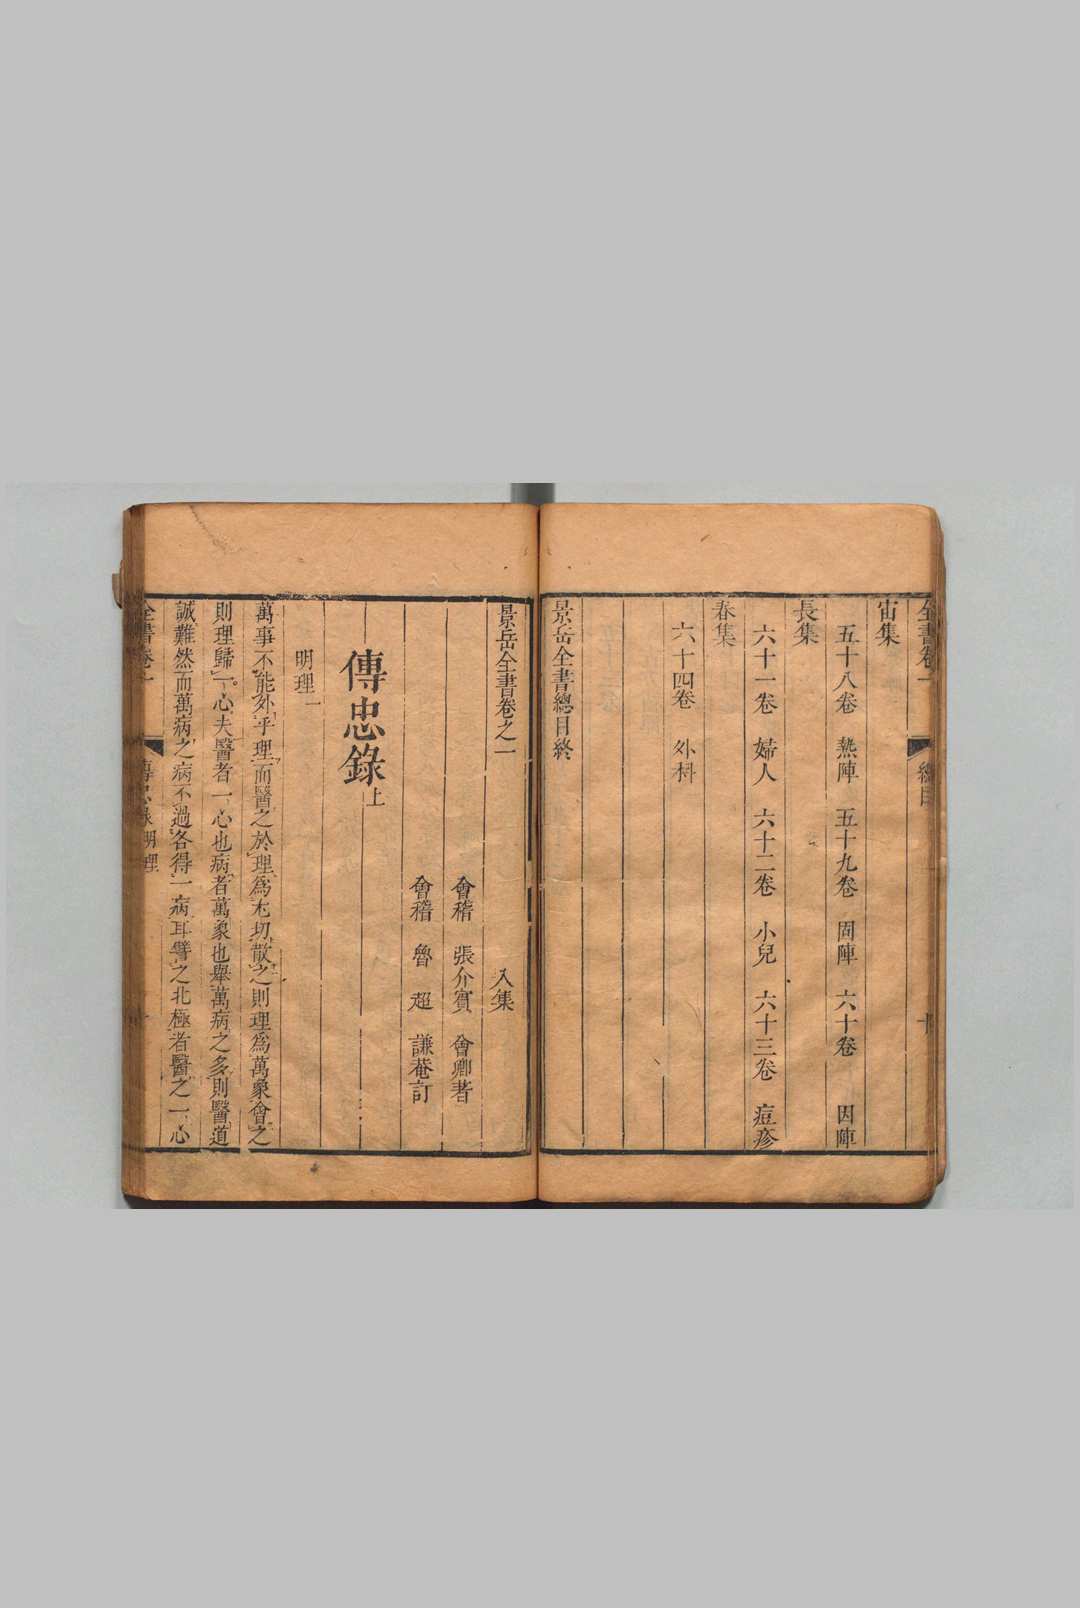 全書卷一 總目
宙集
五十八卷 熱陣 五十九卷 固陣 六十卷 因陣
長集
六十一卷 婦人 六十二卷 小兒 六十三卷 痘疹
春集
六十四卷 外科
景岳全書總目終
景岳全書卷之一 入集
會稽 張介賓 會卿著
會稽 魯 超 謙菴訂
傳忠錄上
明理一
萬事不能外乎理而醫之於理爲尤切散之則理爲萬象會之
則理歸一心夫醫者一心也病者萬象也舉萬病之多則醫道
誠難然而萬病之病不過各得一病耳譬之北極者醫之一心
全書卷一 傳忠錄 明理